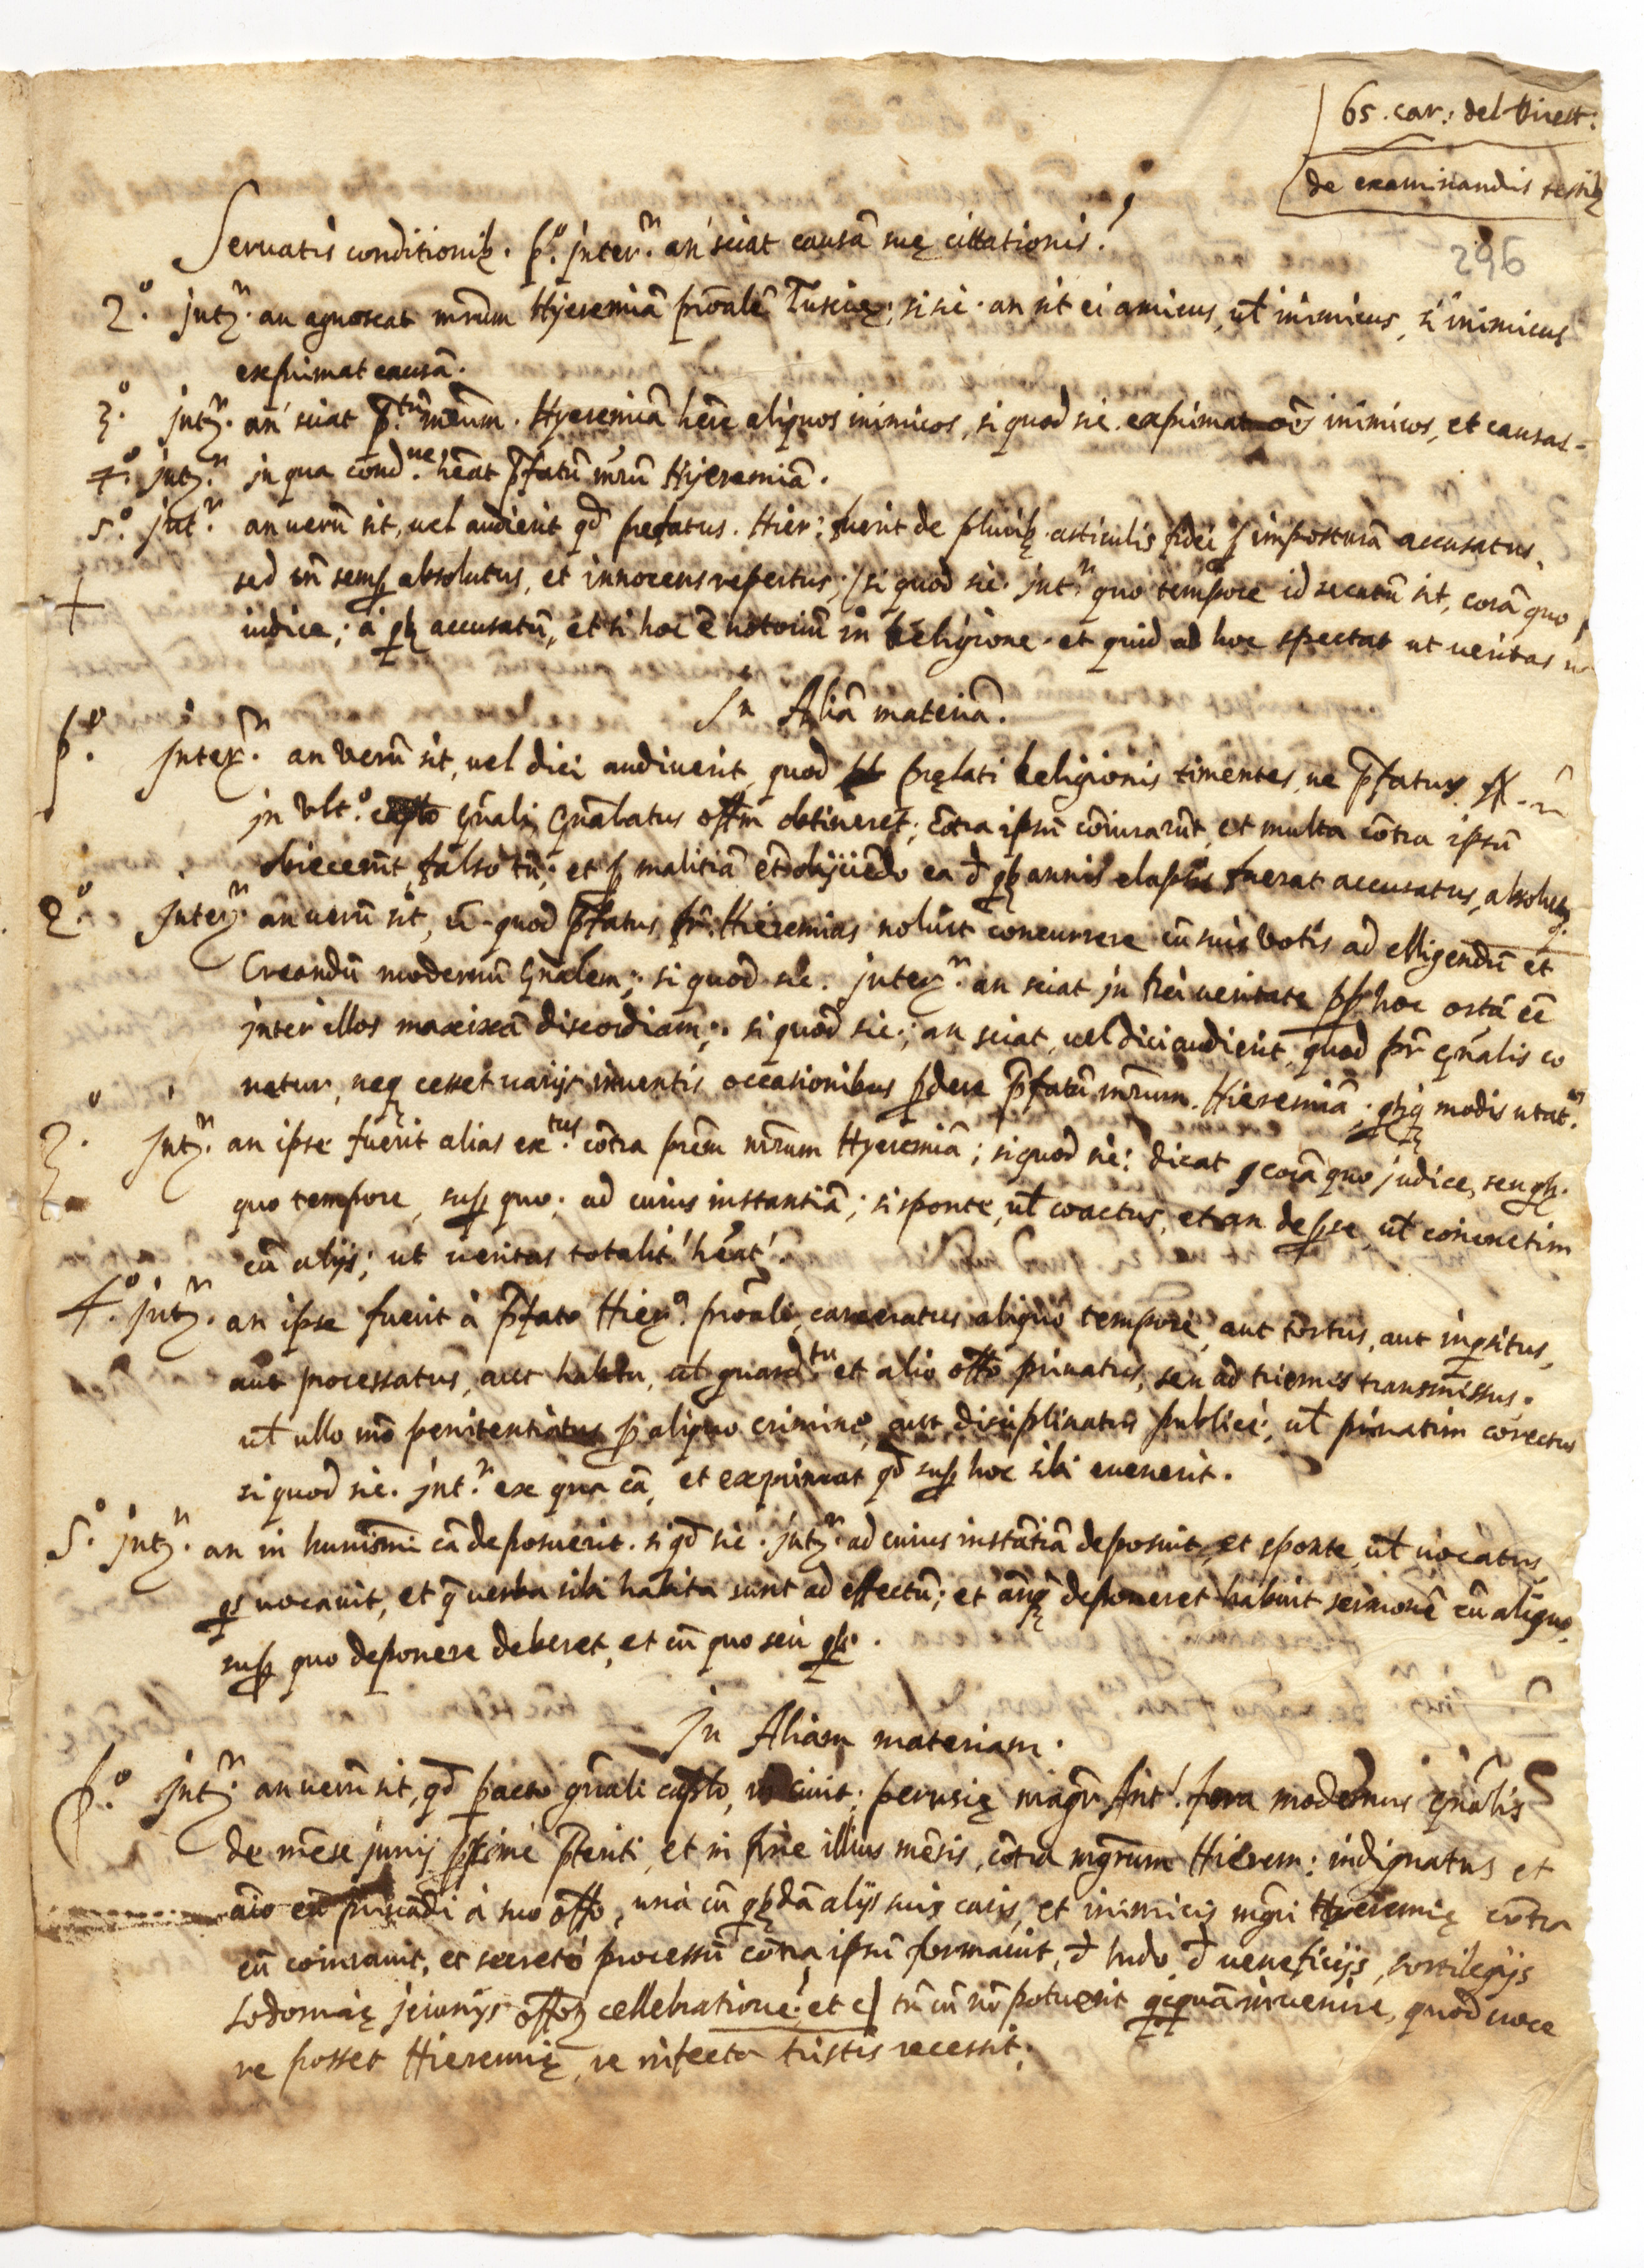 65. car: del Dirett:
de examinandis testibꝫ
296
Seruatis conditionibꝫ. p.º Inter.ⁿ an sciat causã suę cittationis.
2.º jntꝫ.ⁿ an agnoscat mr̃um Hyeremiã prõalẽ Tuscię; si sic. an sit ei amicus, uł inimicus, si inimicus
exprimat causã.
3.º jntꝫ.ⁿ an sciat p.ᵗᵘ̃ mr̃um. Hyeremiã hẽre aliquos inimicos, si quod sic. exprimat oẽs inimicos, et causas-
4.º jntꝫ.ⁿ jn qua cond.ⁿᵉ hẽat p̃fatũ mr̃ũ Hyeremiã.
5.º jnt.ⁿ an uerũ sit, uel audierit qđ prefatus. Hier: fuerit de pluribꝫ articulis fidei ꝑ imposturã accusatus,
sed iñ semꝑ absolutus, et innocens repertus; si quod sic. jnt.ⁿ quo tempore id secutũ sit, corã quo
iudice; à qbꝫ accusatũ, et si hoc ẽ notoriũ in Religione. et quid ad hoc spectat ut ueritas
In Aliã materiã.
p.º Interꝫ.ⁿ an verũ sit, uel dici audiuerit, quod pręlati Religionis timentes, ne p̃fatus
jn vlt.º caplo gñali gñalatus offm̃ obtineret; cõtra ipsũ cõiurarũt, et multa cõtra ipsũ
obiecerũt, falso tñ; et ꝑ malitiã et obijciẽdo ea đ qbꝫ annis elapsis fuerat accusatus, absolutꝰ.
2.º Interꝫ.ⁿ an uerũ sit, quod p̃fatus fr̃. Hieremias noluit concurrere cũ suis votis ad elligendũ et
Creandũ modernũ gñalem; si quod sic. jnterꝫ.ⁿ an sciat jn rei ueritate ꝓꝑ hoc ortã eẽ
jnter illos maximã discordiam; si quod sic; an sciat, uel dici audierit, quod pr̃ gñalis co
netur, neqꝫ cesset uarijs inuentis occasionibus ꝑdere p̃fatũ mr̃um. Hieremiã; qbꝫqꝫ modis utat.ʳ
3.º jntꝫ.ⁿ an ipse fuerit alias ex.ᵗᵘˢ cõtra prẽm mr̃um Hyeremiã; si quod sic: dicat corã quo judice, seu qbꝫ.
quo tempore, suꝑ quo; ad cuius instantiã; si sponte, uł coactus, et an de ꝑ se, uł coniunctim
cũ alijs; ut ueritas totalit' hẽat'.
4.º jntꝫ.ⁿ an ipse fuerit à p̃fato Hier.ª prõali carceratus aliquo tempore, aut tortus, aut inq̃situs,
aut processatus, aut habitu, uł guard.ᵗᵘ et alio offo priuatus, seu ad triremis transmissus.
uł ullo mõ penitentiatus ꝑ aliquo crimine, aut disciplinatus publicè, uł priuatim corectus
si quod sic. jnt.ⁿ ex qua cã, et exprimat qđ suꝑ hoc sibi euenerit.
5.º jntꝫ.ⁿ an in huiusmõi cã deposuerit. si qđ sic. jntꝫ.ⁿ ad cuius instãtiã deposuit, et sponte, uł uocatus,
qs uocauit, et q̃ uerba sibi habita sunt ad effectũ; et anq̃ deponeret habuit sermonẽ cũ aliquo,
suꝑ quo deponere deberet, et cũ quo seu qbꝫ.
In Aliam materiam.
p.º jntꝫ.ⁿ an uerũ sit, qđ ꝑacto gñali caplo, in ciuit: perusię magr̃ Ant.' fera modernus gñalis
de mẽse junij ꝓxime p̃terit, et in fine illius mẽsis, cõtra mgr̃um Hierem: indignatus et
aĩo eũ priuãdi à suo offo, unà cũ qbꝫdã alijs suis caris, et inimicis mgr̃i Hyeremię cõtra
eũ coniurauit, et secretò processũ cõtra ipsũ formauit, đ ludo, đ ueneficijs, sortilegijs
sodomię jeiunijs offoꝝ cellebratione, et c̃ tñ cũ nõ potuerit qcquã inuenire, quod noce
re posset Hieremię, re infecta tristis recessit;